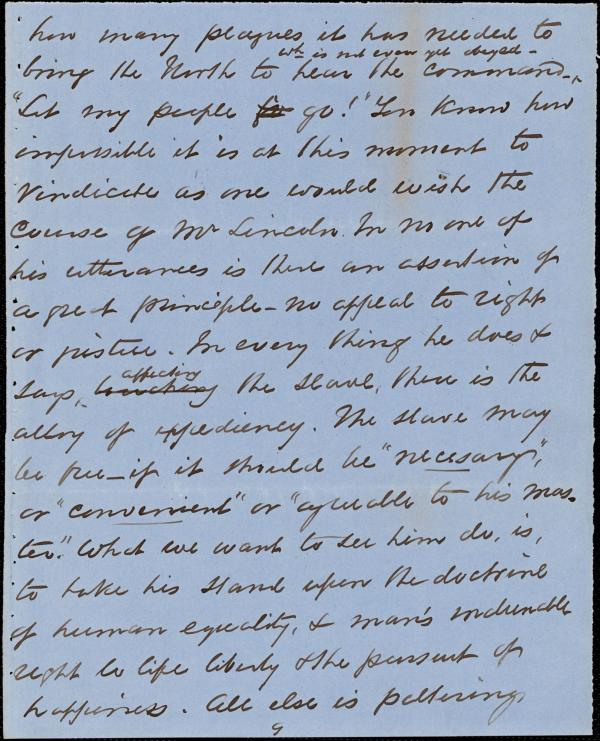 how many plagues it has needed to
wh. is not even yet obeyed -
bring the North to hear the command -,
"Let my people for go!" You know how
impossible it is at this moment to
vindicate as one would wish the
course of Mr Lincoln. In no one of
his utterances is there an assertion of
a great principle - no appeal to right
or justice. In every thing he does &
affecting
says, touching the slave, there is the
alloy of expediency. The slave may
be free - if it should be "necessary",
or "convenient" or "agreeable to his mas-
ter." What we want to see him do, is,
to take his stand upon the doctrine
of human equality, & man's inalienable
right to life liberty & the pursuit of
happiness. All else is paltering,
9